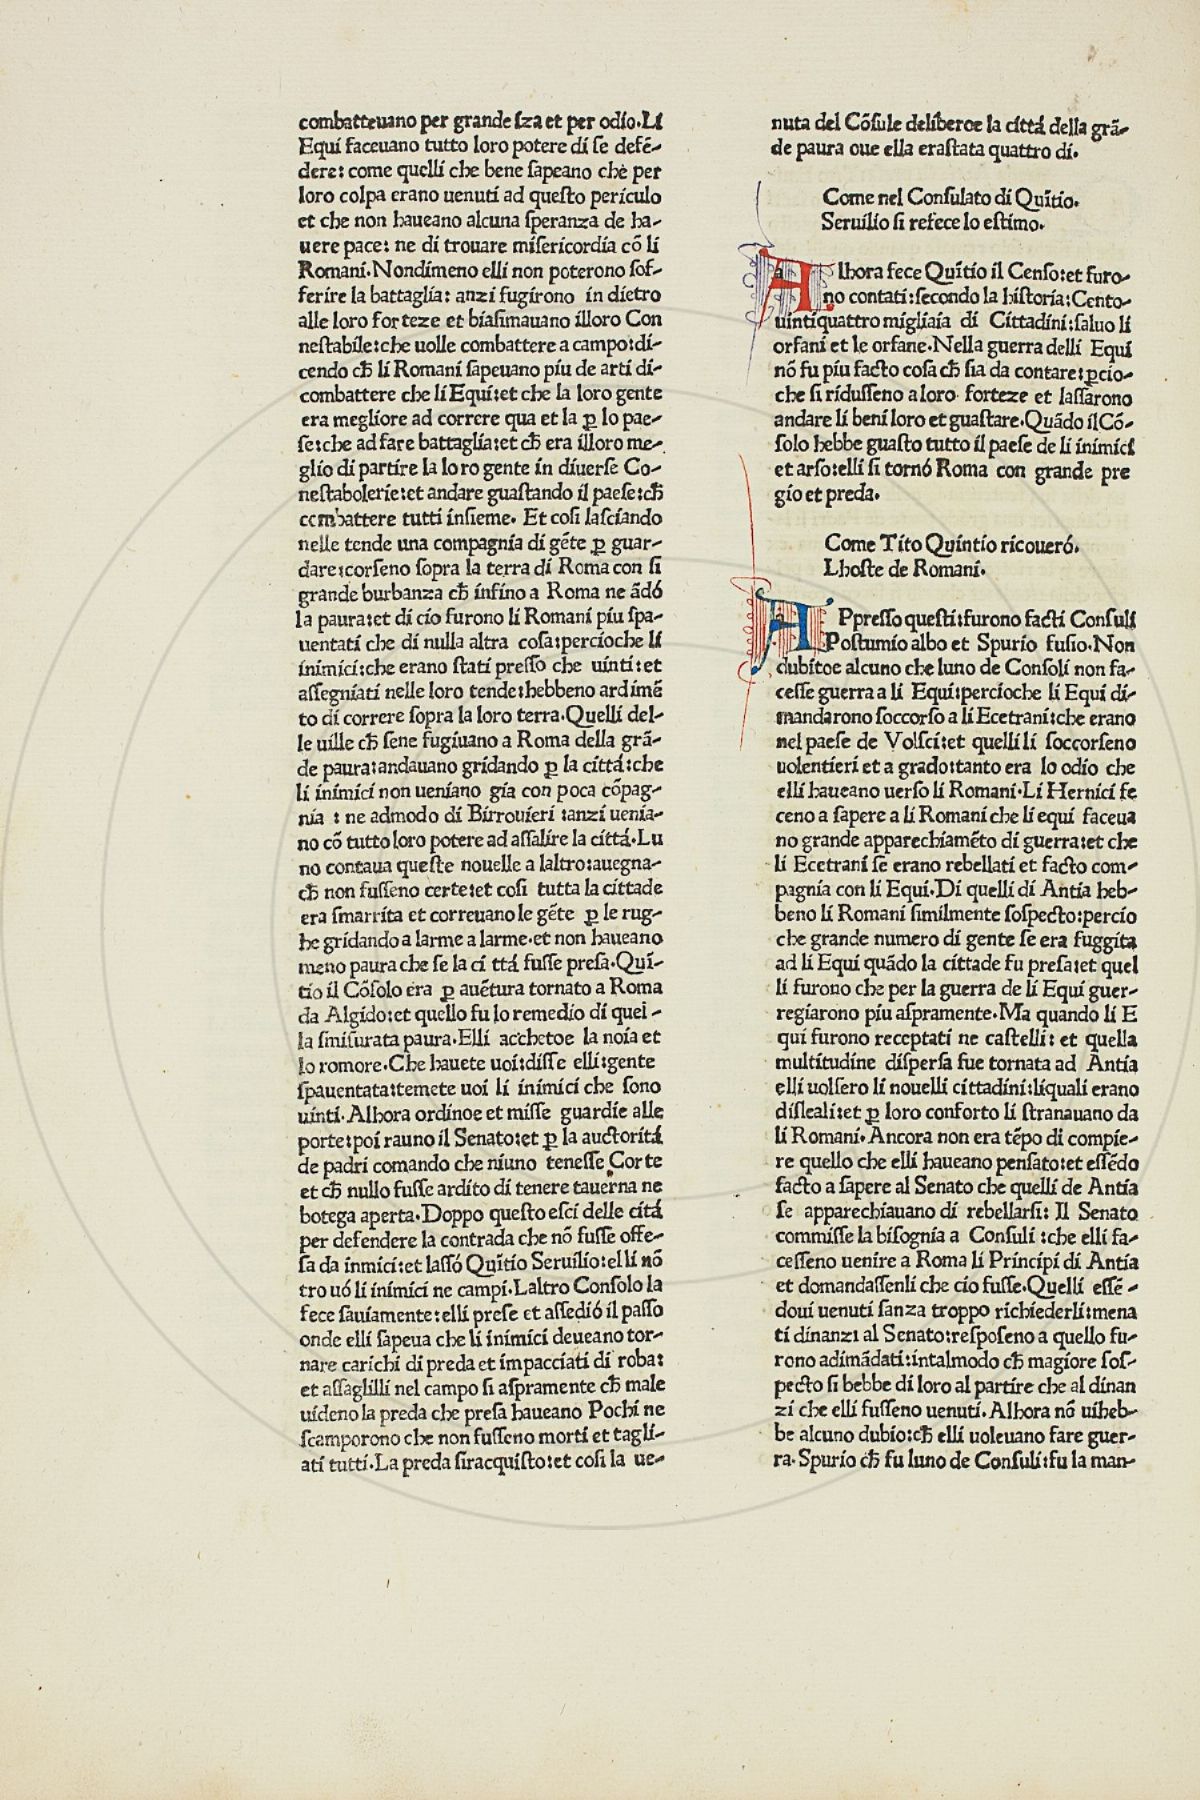 combatteuano per grande ſza et per odio.Li
Equi faceuano tutto loro potere di ſe defē-
dere: come quelli che bene ſapeano che per
loro colpa erano uenuti ad queſto periculo
et che non haueano alcuna ſperanza de ha-
uere pace: ne di trouare miſericordia cō li
Romani.Nondimeno elli non poterono ſof-
ferire la battaglia: anzi fugirono in dietro
alle loro forteze et biaſimauano illoro Con
neſtabile:che uolle combattere a campo:di-
cendo cħ li Romani ſapeuano piu de arti di-
combattere che li Equi:et che la loro gente
era megliore ad correre qua et la ꝑ lo pae-
ſe:che ad fare battaglia:et cħ era illoro me-
glio di partire la loro gente in diuerſe Co-
neſtabolerie:et andare guaſtando il paeſe:cħ
combattere tutti inſieme. Et coſi laſciando
nelle tende una compagnia di gēte ꝑ guar-
dare:corſeno ſopra la terra di Roma con ſi
grande burbanza cħ inſino a Roma ne ādó
la paura:et di cio furono li Romani piu ſpa-
uentati che di nulla altra coſa:percioche li
inimici:che erano ſtati preſſo che uinti:et
aſſegniati nelle loro tende:hebbeno ardimē
to di correre ſopra la loro terra.Quelli del-
le uille cħ ſene fugiuano a Roma della grā-
de paura:andauano gridando ꝑ la cittá:che
li inimici non ueniano gia con poca cōpag-
nia : ne admodo di Birrouieri :anzi uenia-
no cō tutto loro potere ad aſſalire la cittá.Lu
no contaua queſte nouelle a laltro:auegna-
cħ non fuſſeno certe:et coſi tutta la cittade
era ſmarrita et correuano le gēte ꝑ le rug-
he gridando a larme a larme.et non haueano
meno paura che ſe la ci ttá fuſſe preſa.Quī-
tio il Cōſolo era ꝑ auētura tornato a Roma
da Algido:et quello fu lo remedio di quel -
la ſmiſurata paura.Elli acchetoe la noia et
lo romore.Che hauete uoi:diſſe elli:gente
ſpauentata:temete uoi li inimici che ſono
uinti.Alhora ordinoe et miſſe guardie alle
porte:poi rauno il Senato:et ꝑ la auctoritá
de padri comando che niuno teneſſe Corte
et cħ nullo fuſſe ardito di tenere tauerna ne
botega aperta.Doppo queſto eſci delle citá
per defendere la contrada che nō fuſſe offe-
ſa da inmici:et laſſó Quītio Seruilio:elli nō
tro uó li inimici ne campi.Laltro Conſolo la
fece ſauiamente:elli preſe et aſſedió il paſſo
onde elli ſapeua che li inimici deueano tor-
nare carichi di preda et impacciati di roba:
et aſſaglilli nel campo ſi aſpramente cħ male
uideno la preda che preſa haueano Pochi ne
ſcamporono che non fuſſeno morti et tagli-
ati tutti.La preda ſiracquiſto:et coſi la ue-
nuta del Cōſule deliberoe la cittá della grā-
de paura oue ella eraſtata quattro di.
Come nel Conſulato di Quītio.
Seruilio ſi refece lo eſtimo.
Alhora fece Quītio il Cenſo:et furo-
no contati:ſecondo la hiſtoria:Cento-
uintiquattro migliaia di Cittadini:ſaluo li
orfani et le orfane.Nella guerra delli Equi
nō fu piu facto coſa cħ ſia da contare:ꝑcio-
che ſi riduſſeno a loro forteze et laſſarono
andare li beni loro et guaſtare.Quādo il Cō-
ſolo hebbe guaſto tutto il paeſe de li inimici
et arſo:elli ſi tornó Roma con grande pre
gio et preda.
Come Tito Quintio ricoueró.
Lhoſte de Romani.
APpreſſo queſti:furono facti Conſuli
Poſtumio albo et Spurio fuſio.Non
dubitoe alcuno che luno de Conſoli non fa-
ceſſe guerra a li Equi:percioche li Equi di-
mandarono ſoccorſo a li Ecetrani:che erano
nel paeſe de Volſci:et quelli li ſoccorſeno
uolentieri et a grado:tanto era lo odio che
elli haueano uerſo li Romani.Li Hernici fe
ceno a ſapere a li Romani che li equi faceua
no grande apparechiamēto di guerra:et che
li Ecetrani ſe erano rebellati et facto com-
pagnia con li Equi.Di quelli di Antia heb-
beno li Romani ſimilmente ſoſpecto:percio
che grande numero di gente ſe era fuggita
ad li Equi quādo la cittade fu preſa:et quel
li furono che per la guerra de li Equi guer-
regiarono piu aſpramente.Ma quando li E
qui furono receptati ne caſtelli: et quella
multitudine diſperſa fue tornata ad Antia
elli uolſero li nouelli cittadini:liquali erano
diſleali:et ꝑ loro conforto li ſtranauano da
li Romani.Ancora non era tēpo di compie-
re quello che elli haueano penſato:et eſſēdo
facto a ſapere al Senato che quelli de Antia
ſe apparechiauano di rebellarſi: Il Senato
commiſſe la biſognia a Conſuli :che elli fa-
ceſſeno uenire a Roma li Principi di Antia
et domandaſſenli che cio fuſſe.Quelli eſſē -
doui uenuti ſanza troppo richiederli:mena
ti dinanzi al Senato:reſpoſeno a quello fu-
rono adimādati:intalmodo cħ magiore ſoſ-
pecto ſi hebbe di loro al partire che al dinan
zi che elli fuſſeno uenuti.Alhora nō uiheb-
be alcuno dubio:cħ elli uoleuano fare guer-
ra.Spurio cħ fu luno de Conſuli:fu la man-